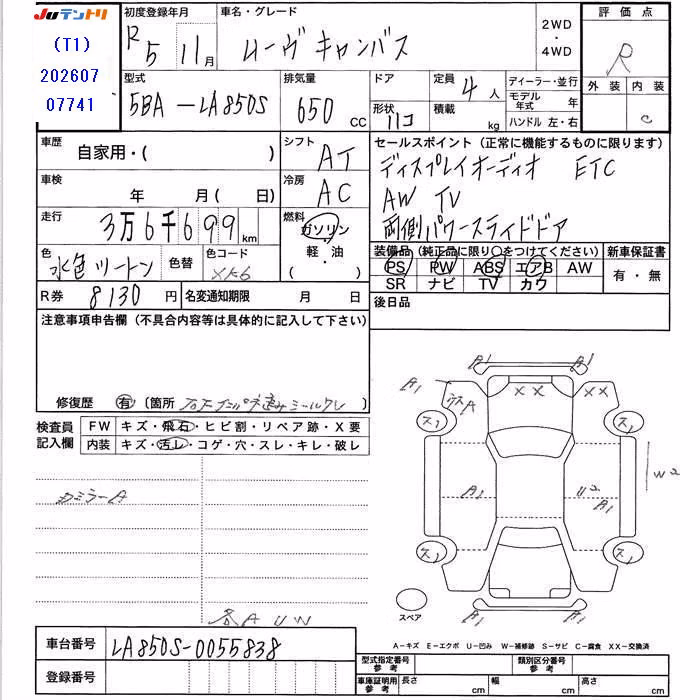 JUテントリ
(T1)
202607
07741
初度登録年月
R5 11月
車名・グレード
ムーヴ キャンバス
2WD
・
4WD
評価点
R
外装 内装
C
型式
5BA-LA850S
排気量
650 CC
ドア
形状
ハコ
定員
4人
積載
kg
ディーラー・並行
モデル年式 年
ハンドル 左・右
車歴
自家用・( )
シフト
AT
車検
年 月( 日)
冷房
AC
走行
3万6千699km
燃料
ガソリン
・
軽・油
( ・ )
色
水色ツートン
色替
色コード
R券
8130円
名変通知期限 月 日
セールスポイント(正常に機能するものに限ります)
ディスプレイオーディオ ETC
AW TV
両側パワースライドドア
装備品(純正品に限り〇をつけてください)
PS PW ABS エアB AW
SR ナビ TV カワ
新車保証書
有・無
後日品
注意事項申告欄(不具合内容等は具体的に記入して下さい)
修復歴 有 〔箇所
検査員
記入欄
FW キズ・飛石・ヒビ割・リペア跡・X要
内装 キズ・汚レ・コゲ・穴・スレ・キレ・破レ
カミラーA
各AUW
A1 A1
A1 XX XX
A1 U2 A1
W2
A1 A1
スペア
A-キズ E-エクボ U-凹み W-補修跡 S-サビ C-腐食 XX-交換済
車台番号
LA850S-0055838
登録番号
型式指定番号
参考
類別区分番号
参考
車庫証明用
参考
長さ cm 幅 cm 高さ cm